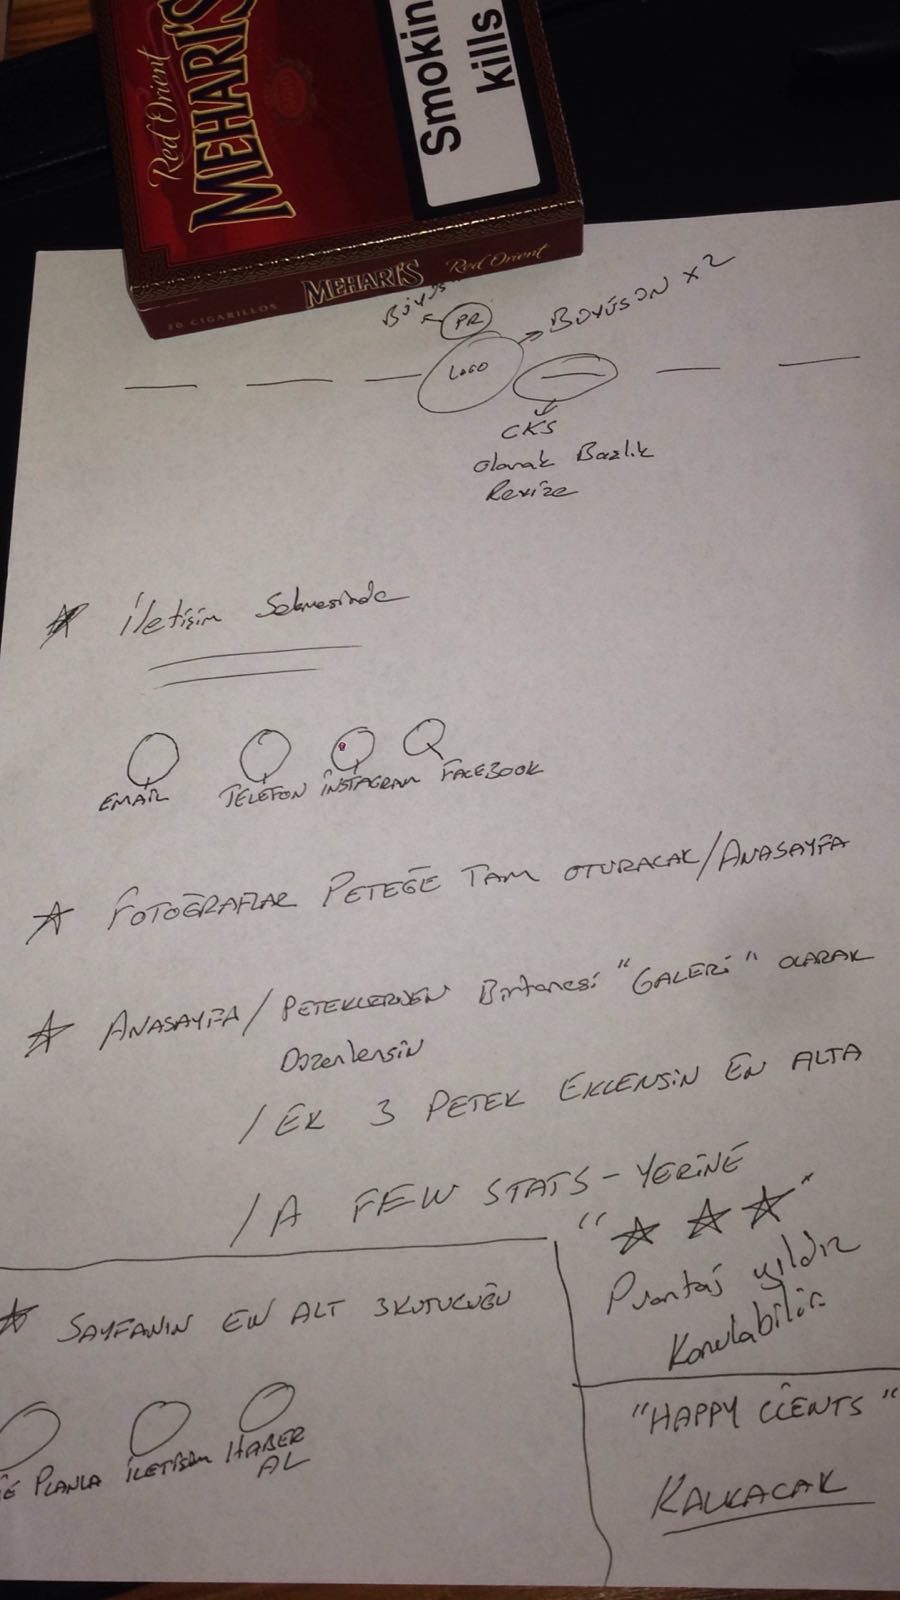 Red Orient
MEHARI'S
Smokin
kills
20 CIGARILLOS
MEHARI'S
Red Orient
PR
BÜYÜSÜN X2
LOGO
CKS
olarak Bazlık
Revize
İletişim Sekmesinde
EMAİL
TELEFON
İNSTAGRAM
FACEBOOK
FOTOĞRAFLAR PETEĞE TAM OTURACAK/ANASAYFA
ANASAYFA/ PETEKLERDEN Birtanesi "GALERİ" OLARAK
Düzenlensin
/ EK 3 PETEK EKLENSİN EN ALTA
/ A FEW STATS - YERİNE
Puantaj yıldız
Konulabilir
SAYFANIN EN ALT 3KUTUCUĞU
PLANLA
İLETİŞİM
HABER
AL
"HAPPY CİENTS"
KALKACAK